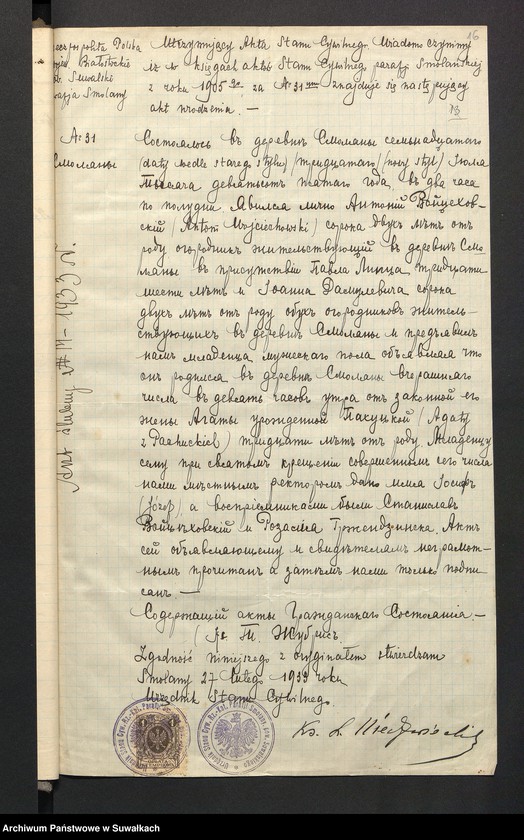 Rzeczpospolita Polska
Białostockie
Suwalski
parafja Smolany
16
Utrzymujący Akta Stanu Cywilnego. Wiadomo czynimy
iż w księgach aktów Stanu Cywilnego parafji Smolańskiej
z roku 1905 go za № 31 znajduje się następujący
akt urodzenia. —
№ 31
Смоляны
Akt ślubny № 11 - 1933 r.
Состоялось въ деревнѣ Смоляны семьнадцатаго
(даты wedle starego stylu) / тридцатаго / (nowy styl) Іюля
Тысяча девятьсотъ пятаго года, въ два часа
по полудни Явился лично Антоній Войцехов-
скій / Antoni Wojciechowski / сорока двухъ лѣтъ отъ
роду огородникъ жительствующій въ деревнѣ Смо
ляны въ присутствіи Павла Липца тридцати
шести лѣтъ и Іоанна Данулевича сорока
двухъ лѣтъ отъ роду обухъ огородниковъ житель-
ствующихъ въ деревнѣ Смоляны и предъявилъ
намъ младенца мужескаго пола объявляя что
онъ родился въ деревнѣ Смоляны вчерашняго
числа въ девять часовъ утра отъ законной его
жены Агаты урожденной Пахуцкой / Agaty
z Pachuckich) тридцати лѣтъ отъ роду. Младенцу
сему при святомъ крещеніи совершенномъ сего числа
нами мѣстнымъ ректоромъ дано имя Іосифъ
(Józef), а воспріемниками были Станиславъ
Войцѣховскій и Розалія Гржендзинска. Актъ
сей объявляющему и свидѣтелямъ неграмот-
нымъ прочитанъ а затѣмъ нами только подпи
санъ —
Содержащій акты Гражданскаго Состоянія. —
Zgodność niniejszego z oryginałem stwierdzam
Smolany 27 lutego 1933 roku
Urzędnik Stanu Cywilnego.
Archiwum Państwowe w Suwałkach